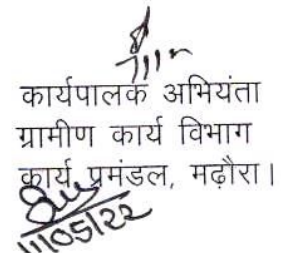 कार्यपालक अभियंता
ग्रामीण कार्य विभाग
कार्य प्रमंडल, मढ़ौरा।
11/05/22